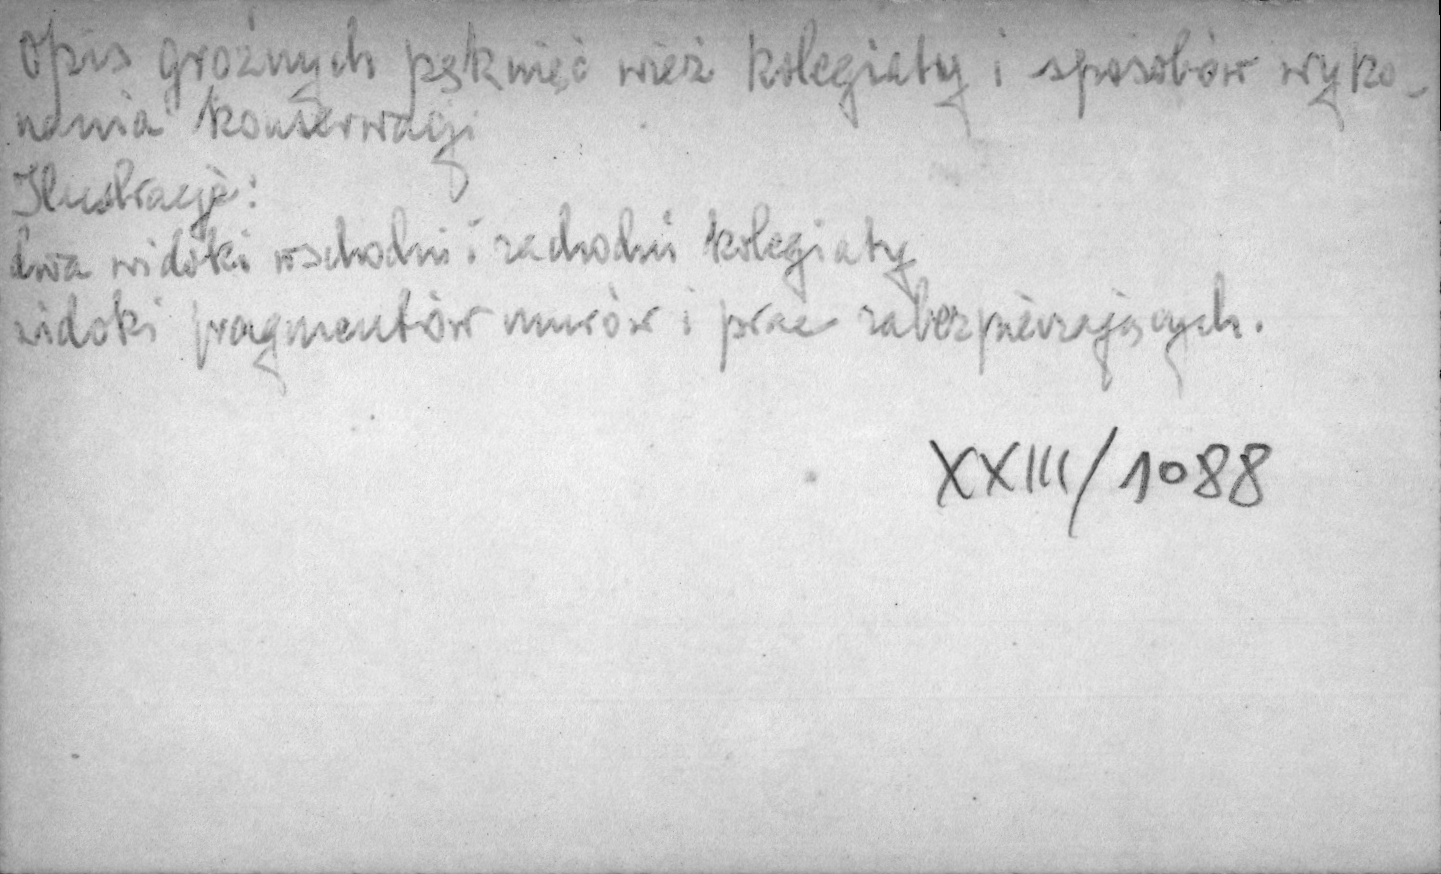 Opis groźnych pęknięć wież kolegiaty i sposobów wyko-
nania konserwacji
Ilustracje:
dwa widoki wschodni i zachodni kolegiaty
widoki fragmentów murów i prac zabezpieczających.
XXIII/1088